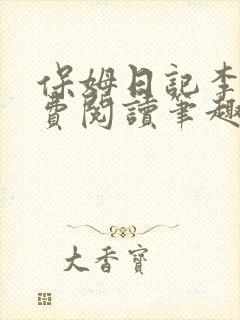 保姆日記李
費閱讀筆趣
大香寶